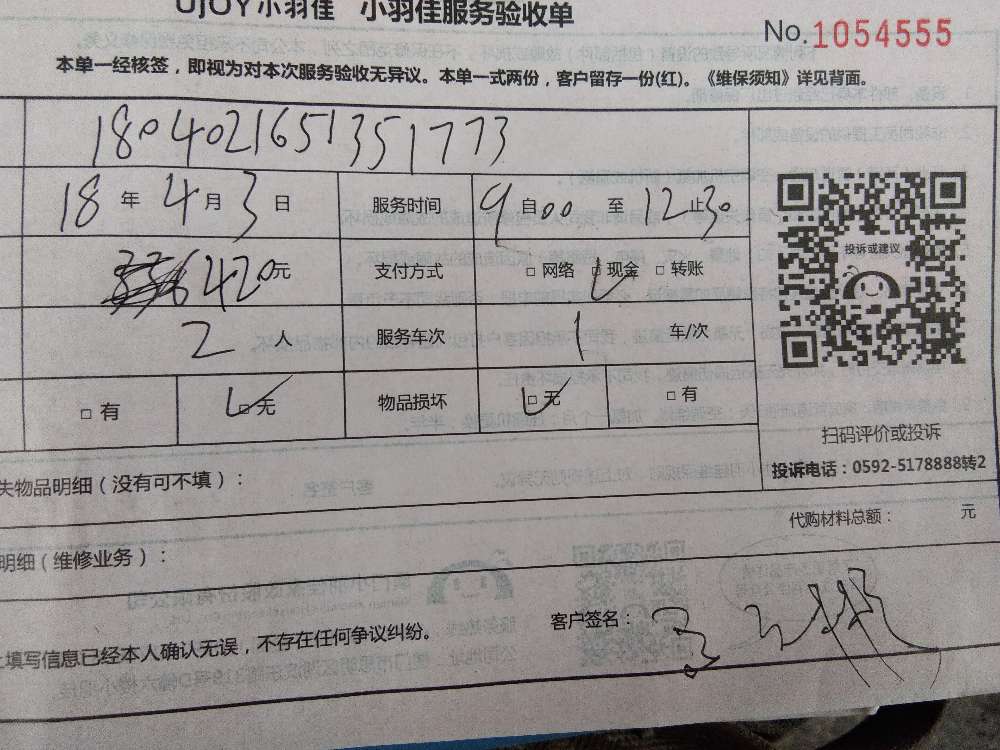 UJOY小羽佳 小羽佳服务验收单
No.1054555
本单一经核签，即视为对本次服务验收无异议。本单一式两份，客户留存一份(红)。《维保须知》详见背面。
1804021651351773
18 年 4 月 3 日 服务时间 9 自 00 至 12 止 30
6420元 支付方式 □ 网络 □ 现金 □ 转账
投诉或建议
2 人 服务车次 1 车/次
□ 有 □ 无 物品损坏 □ 无 □ 有
扫码评价或投诉
投诉电话：0592-5178888转2
失物品明细（没有可不填）：
代购材料总额： 元
明细（维修业务）：
客户签名：
上填写信息已经本人确认无误，不存在任何争议纠纷。